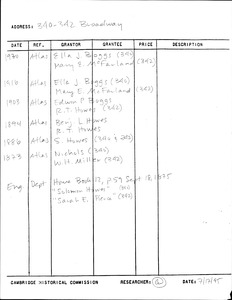 ADDRESS: 340-342 Broadway
DATE REF. GRANTOR GRANTEE PRICE DESCRIPTION
1930 Atlas Ella J Boggs (340)
Mary E. McFarland (342)
1916 Atlas Ella J Boggs (340)
Mary E McFarland (342)
1903 Atlas Edwin P Boggs
R.T. Howes (342)
1894 Atlas Benj L Howes
R.T. Howes
1886 Atlas S. Howes (340 & 342)
1873 Atlas Nichols (340)
W.H. Miller (342)
Eng. Dept. House Book 12, p. 59 Sept. 18, 1875
"Solomon Howes" 340
"Sarah E. Peirce" 342
CAMBRIDGE HISTORICAL COMMISSION RESEARCHER: DATE: